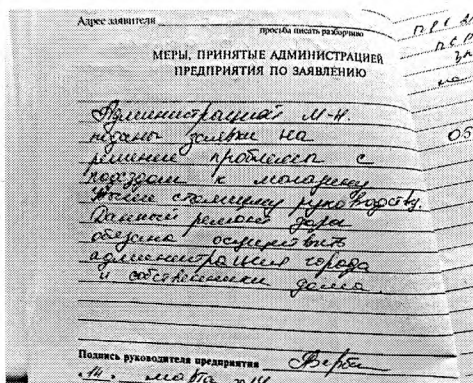 Адрес заявителя
просьба писать разборчиво
МЕРЫ, ПРИНЯТЫЕ АДМИНИСТРАЦИЕЙ
ПРЕДПРИЯТИЯ ПО ЗАЯВЛЕНИЮ
Администрацией М-н.
поданы заявки на
решение проблемы с
подъездом к магазину
руководству.
Данный ремонт
обязана осуществить
администрация города
и собственники дома.
Подпись руководителя предприятия
14. марта
05